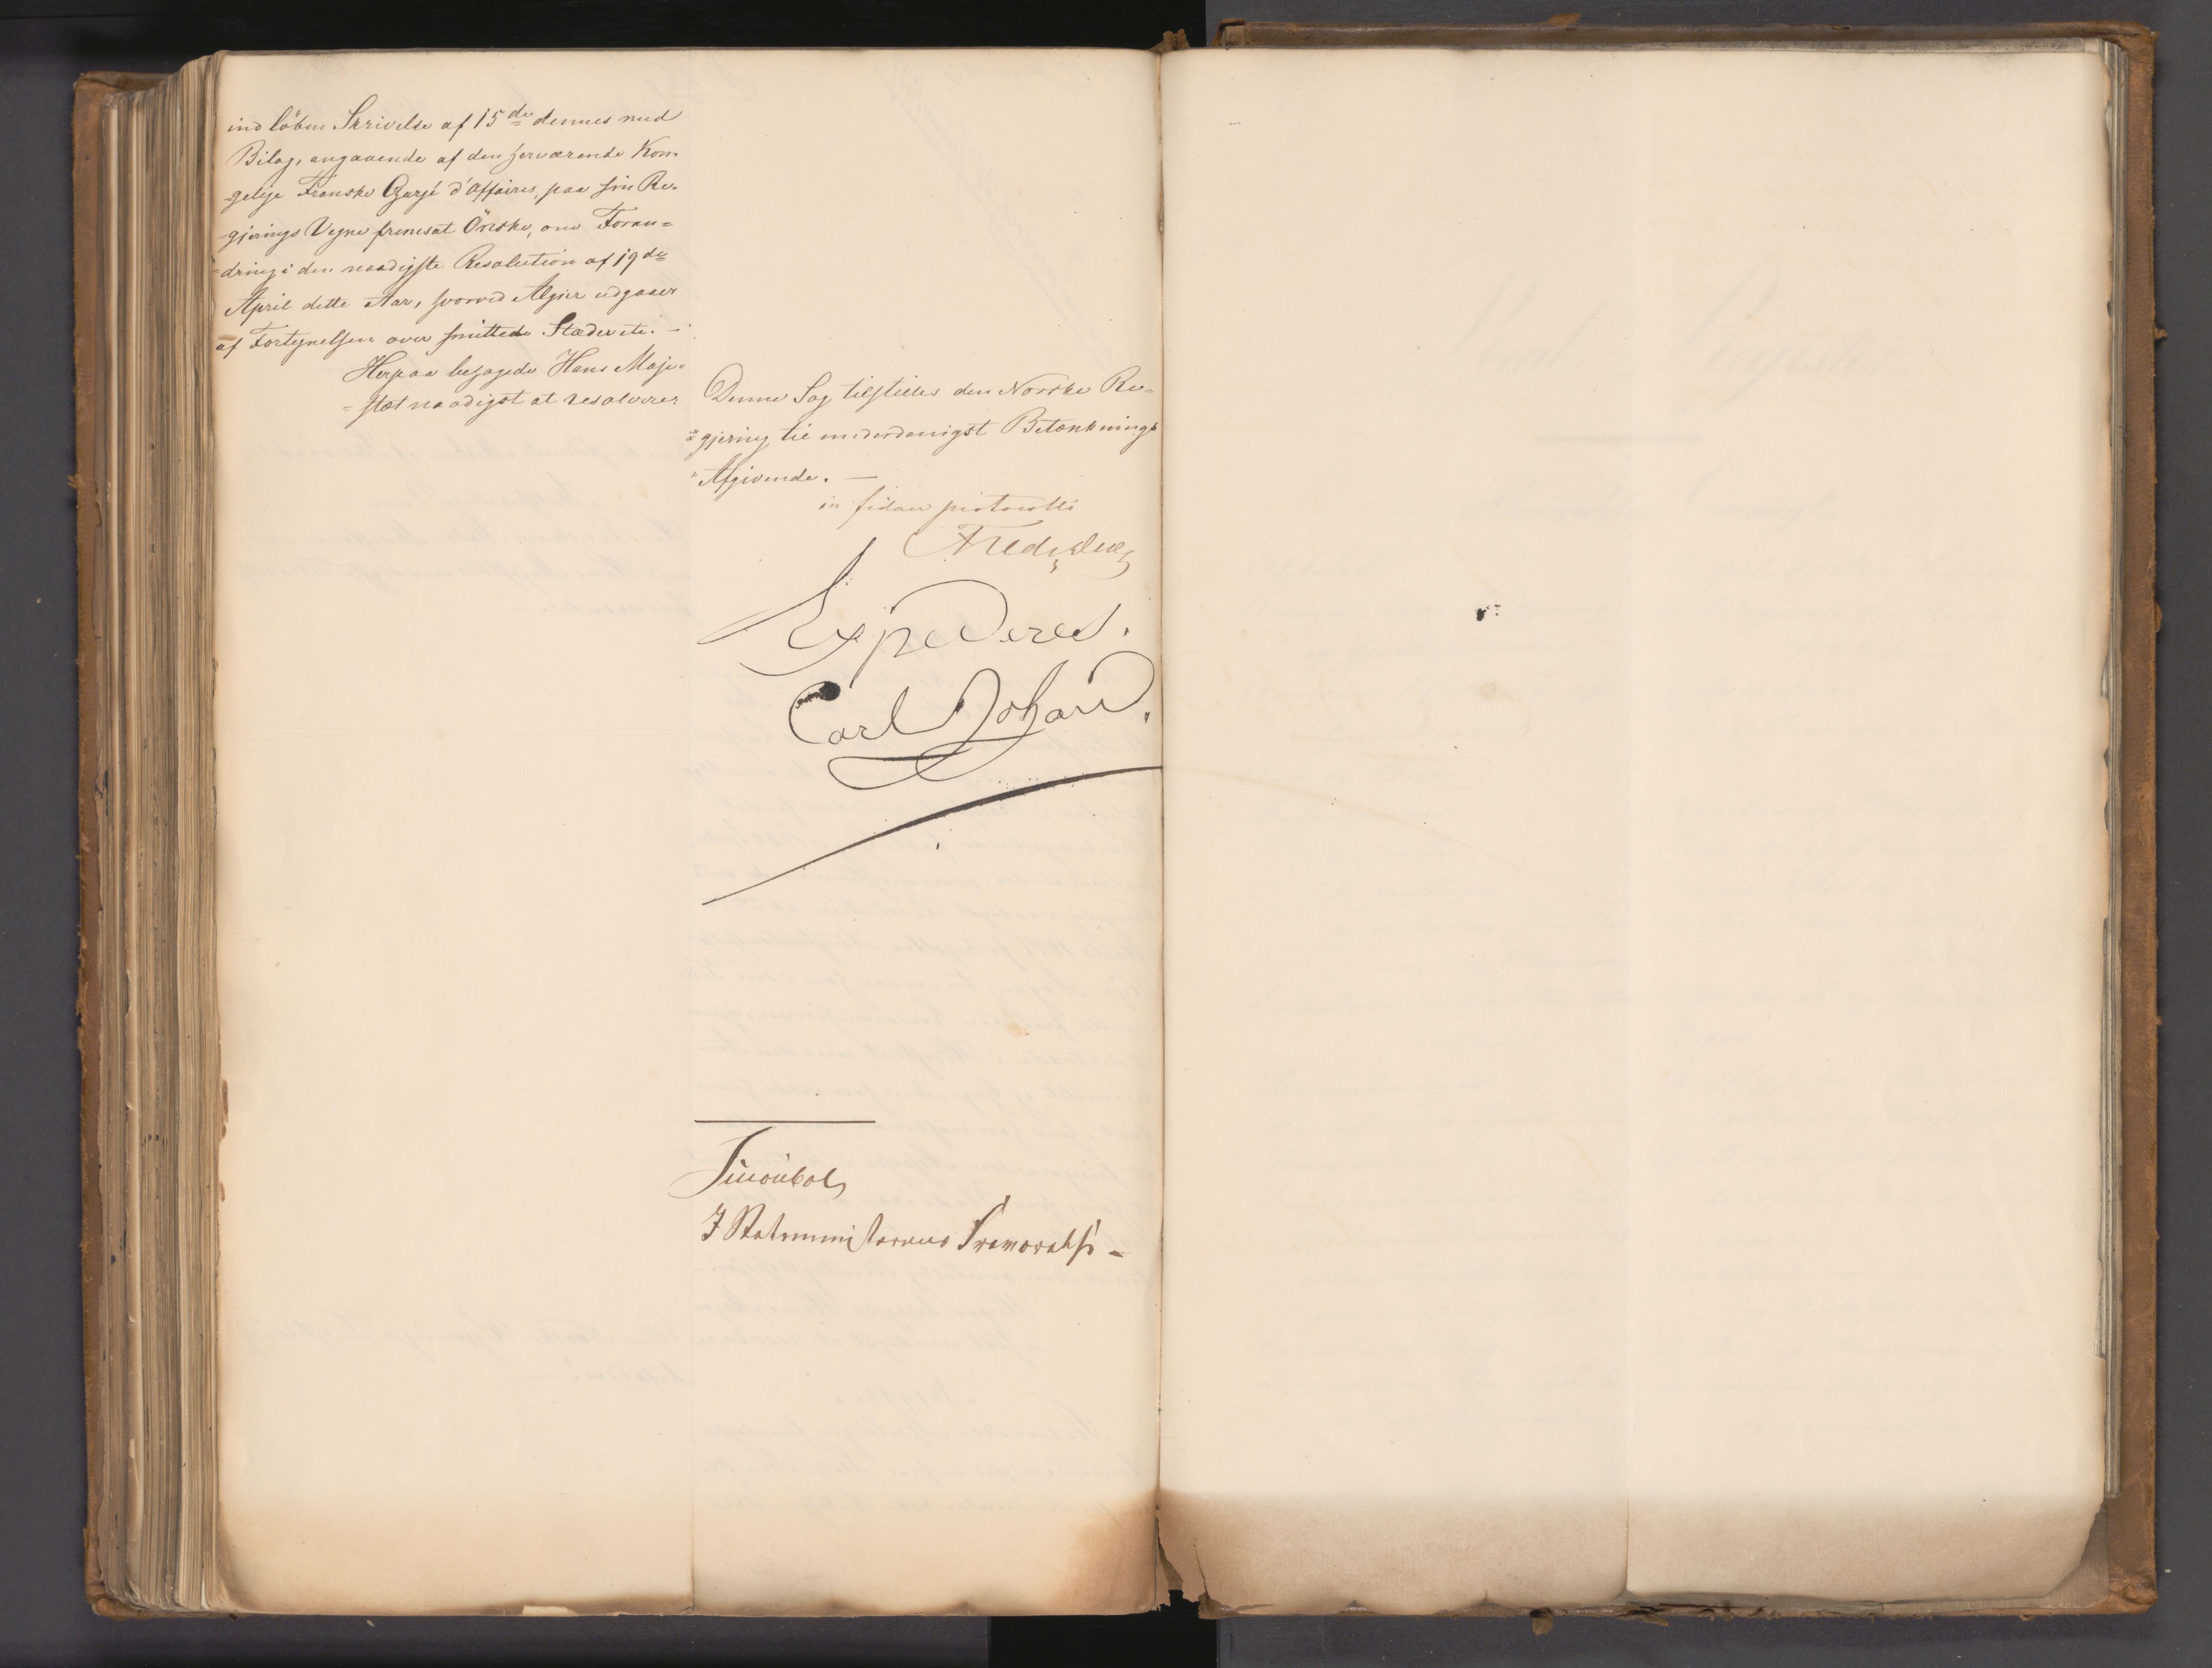 indløben Skrivelse af 15de dennes med
Bilag, angaaende af den herværende Kon-
-gelige Franske Chargé d'Affaires, paa sin Re-
-gjerings Vegne fremsat Ønske, om Foran=
=dring i den naadigste Resolution af 19de
April dette Aar, hvorved Algier udgaaer
af Fortegnelsen over smittede Stæder etc. —
Herpaa behagede Hans Maje=
=stæt naadigst at resolvere:
Denne Sag tilstilles den Norske Re=
=gjering til underdanigst Betænknings
Afgivende. —
in fidem protocolli
Expederes.
Carl Johan.
I Statsministerens Fraværelse –